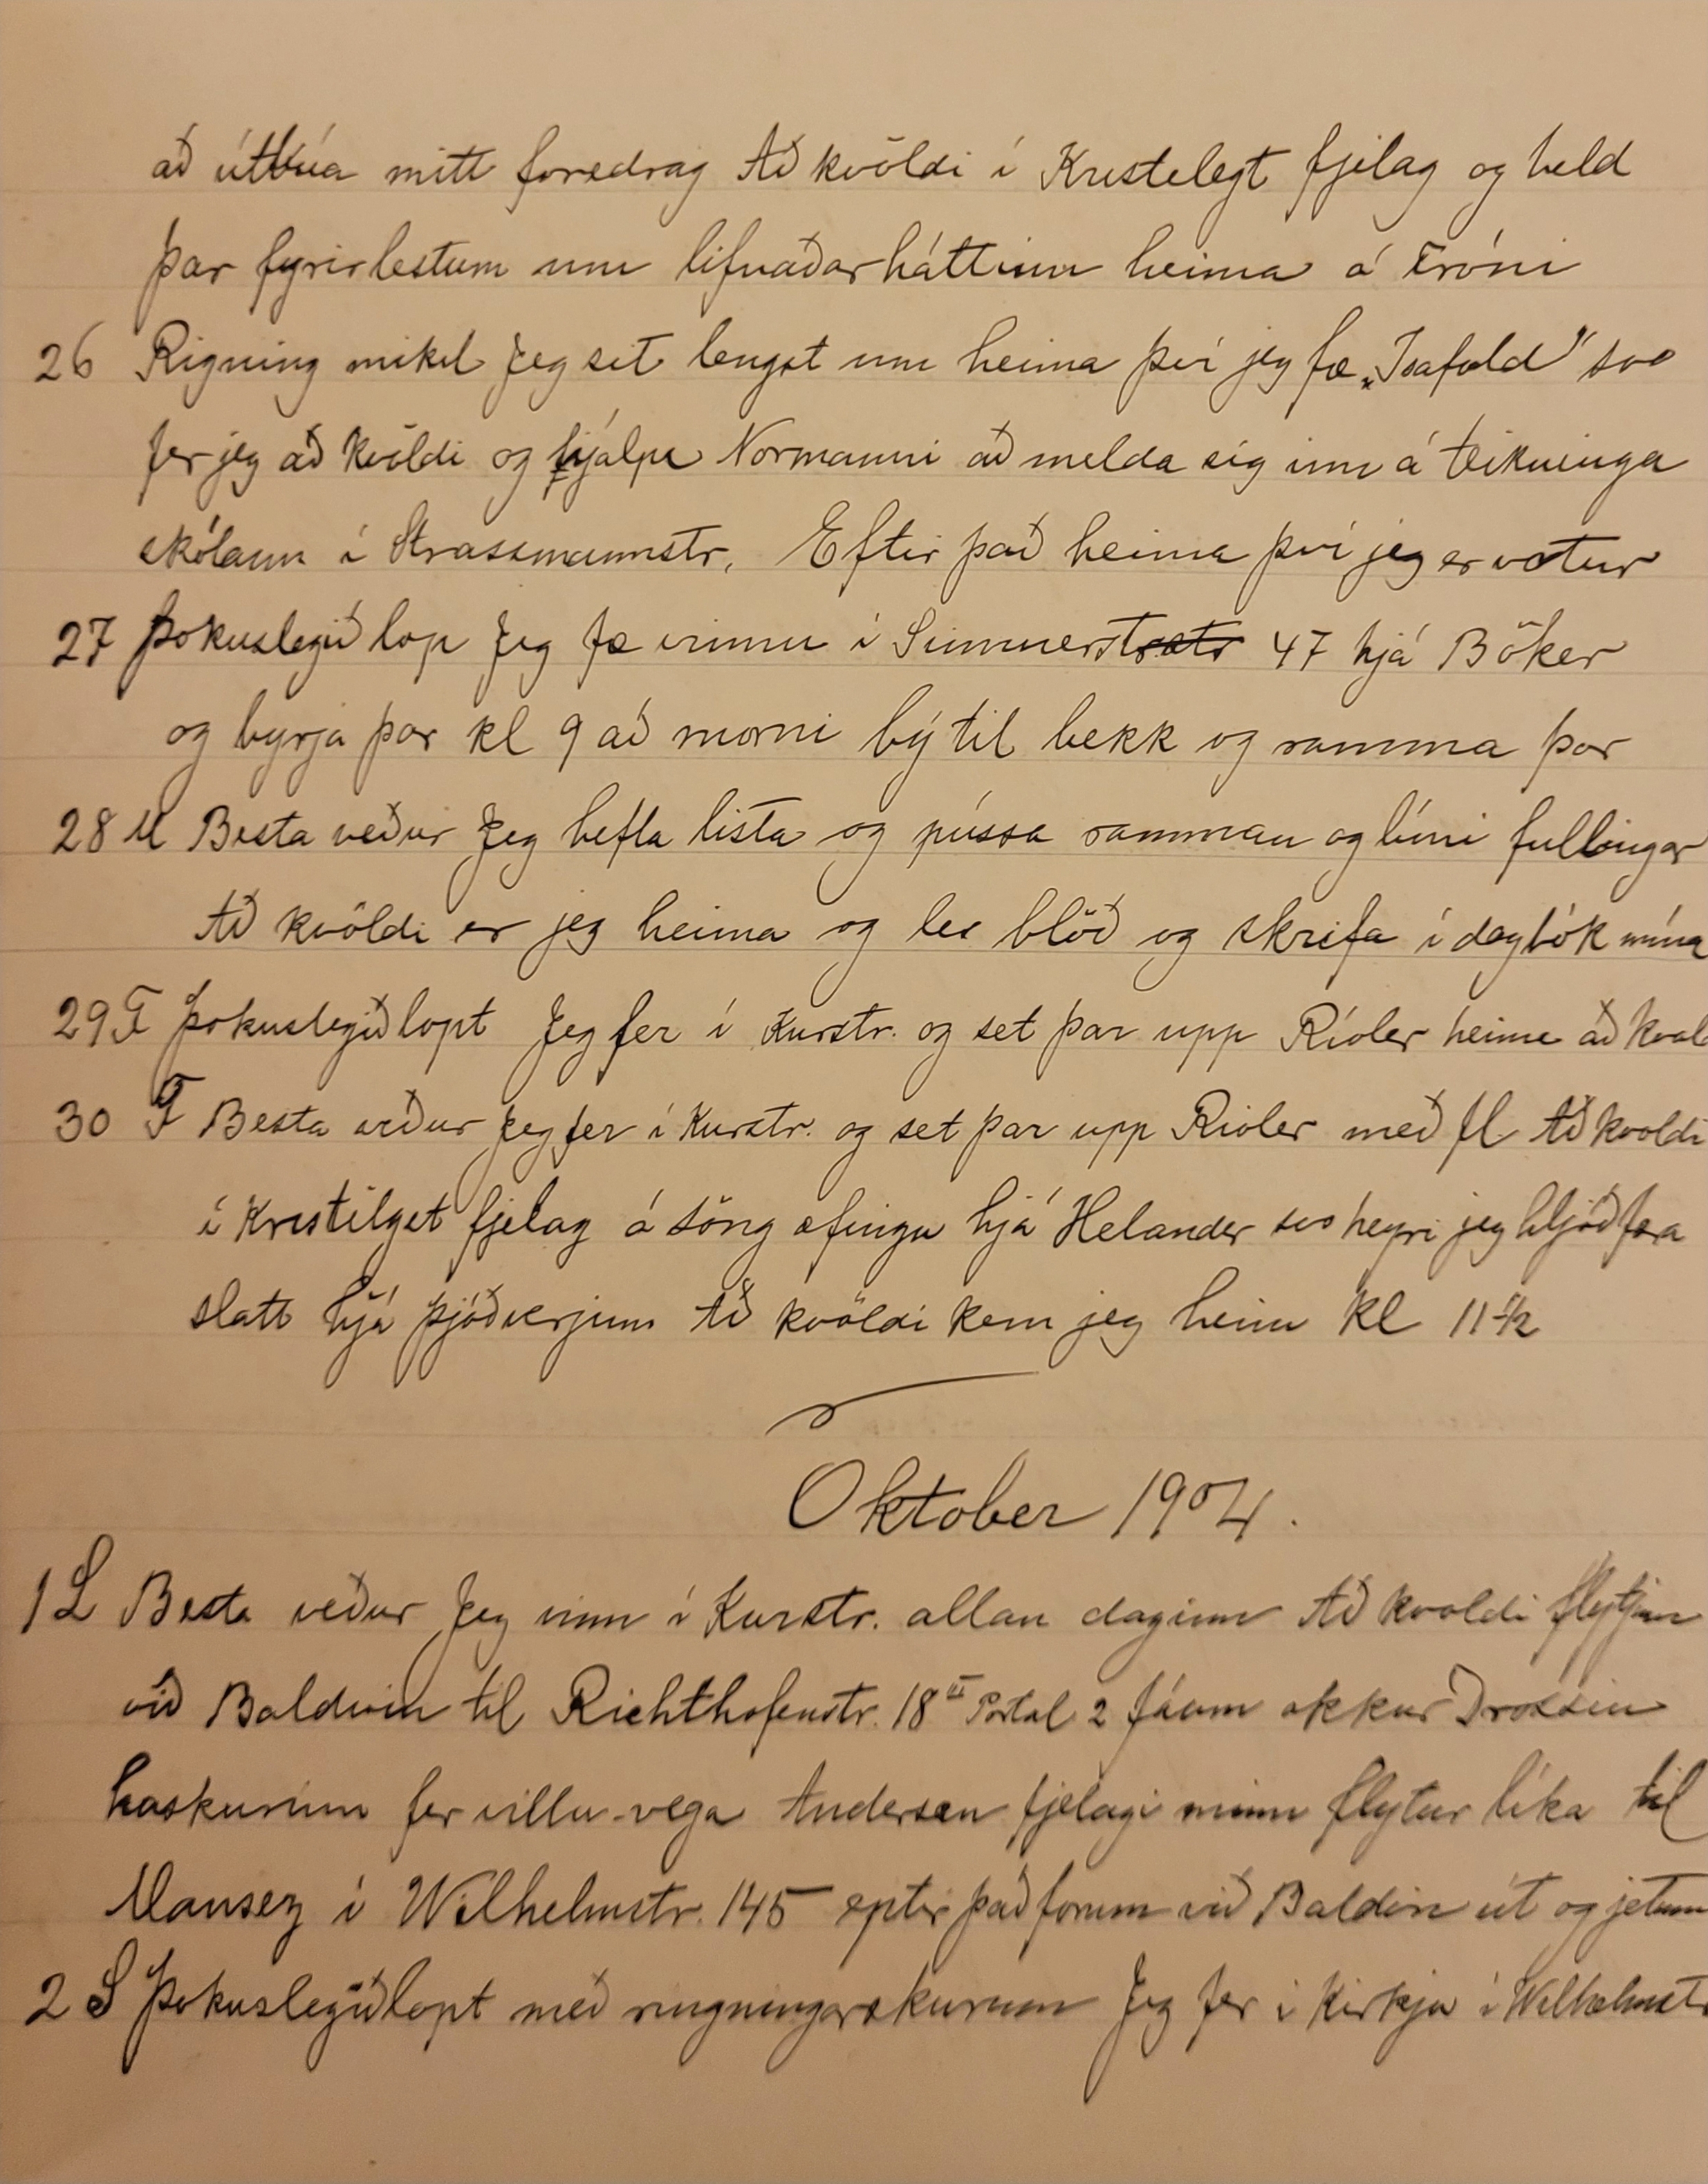 að útbúa mitt foredrag Að kvöldi í Kristelegt fjelag og held
þar fyrirlestum um lifnaðarháttinn heima á Fróni
26 Rigning mikil Jeg sit lengst um heima því jeg fæ „Isafold" svo
fer jeg að kvöldi og hjálpa Normanni að melda sig inn á teikninga
skólann í Strassmannstr. Eftir það heima því jeg er votur
27 Þokuslegið lop Jeg fæ vinnu í Simmerstr 47 hjá Böker
og byrja þar kl 9 að morni bý til bekk og ramma þar
28 M Besta veður Jeg hefla lista og pússa ramman og lími fullingar
Að kvöldi er jeg heima og les blöð og skrifa í dagbók mína
29 F Þokuslegið lopt Jeg fer í Kurstr. og set þar upp Ríoler heime að
30 F Besta veður Jeg fer í Kurstr. og set þar upp Rioler með fl Að kvoldi
í Kristilget fjelag á söng æfingu hjá Helander svo heyri jeg hljóðfæra
slátt hjá þjóðverjum Að kvöldi kem jeg heim kl 11 1/2
Oktober 1904.
1 L Besta veður Jeg vinn í Kurstr. allan daginn Að kvoldi flytjum
við Baldwin til Richthofenstr. 18 III Portal 2 fáum okkur Drossiu
kaskurinn fer villu-vega Andersen fjelagi minn flytur líka til
í Wilhelmstr. 145 eptir það forum við Baldin út og jetum
2 S Þokuslegið lopt með ringningarskurum Jeg fer í Kirkju í Wilhelmstr